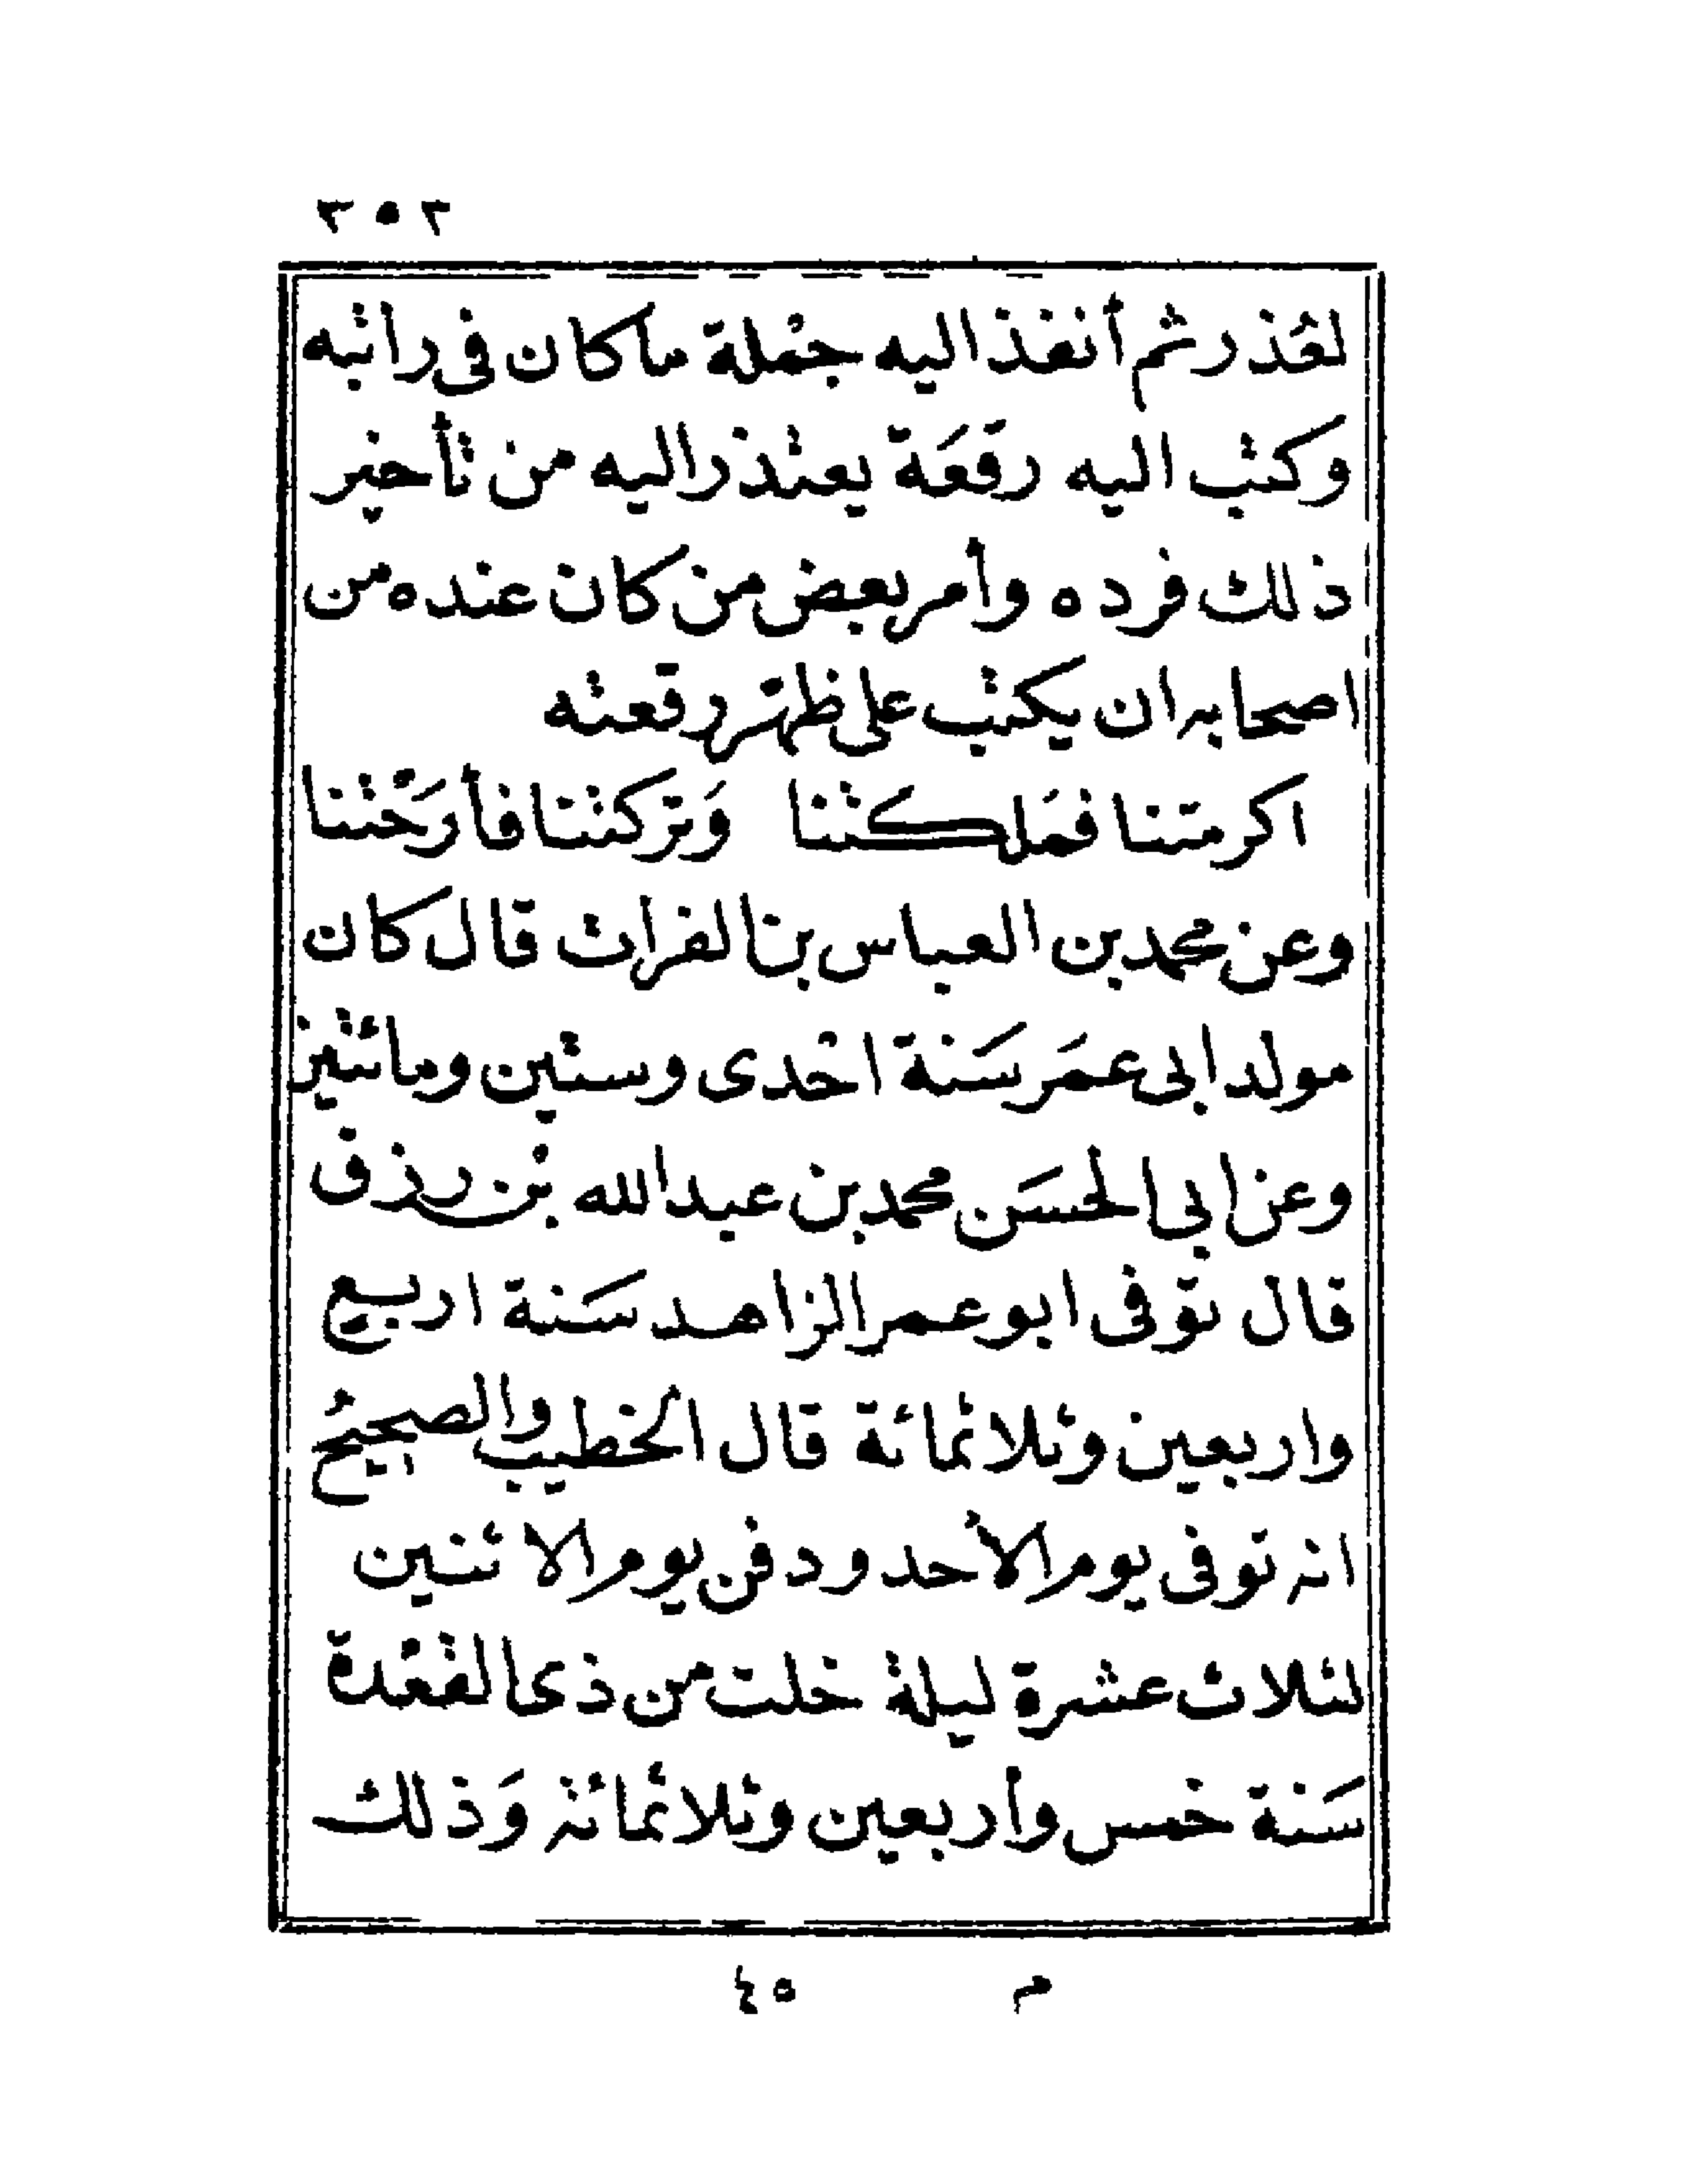 ٣٥٣
لعُذر ثم أنفذ اليه جمْلة ما كان فى راتبه
وكتب اليه رقعَة يعتذر اليه من تأخير
ذلك فرده وأمر بعض من كان عنده من
اصحابه ان يكتب على ظهر رقعته
اكرمتنا فمَلكتنا وَتركتنا فأرَحْتنا
وعن محمد بن العباس بن الفرات قال كان
مولد ابى عمَر سَنة احْدى وستين ومائتين
وعن ابى الحسَن محمد بن عبد الله بْن رزق
قال توفى ابو عمر الزاهد سَنة اربع
واربعين وثلاثمائة قال الخطيب والصحيحُ
انه توفى يوم الأحد ودفن يوم الاثنين
لثلاث عشرة ليلة خلت من ذى القعْدة
سَنة خمس وأربعين وثلاثمائة وَذلك
م ٤٥